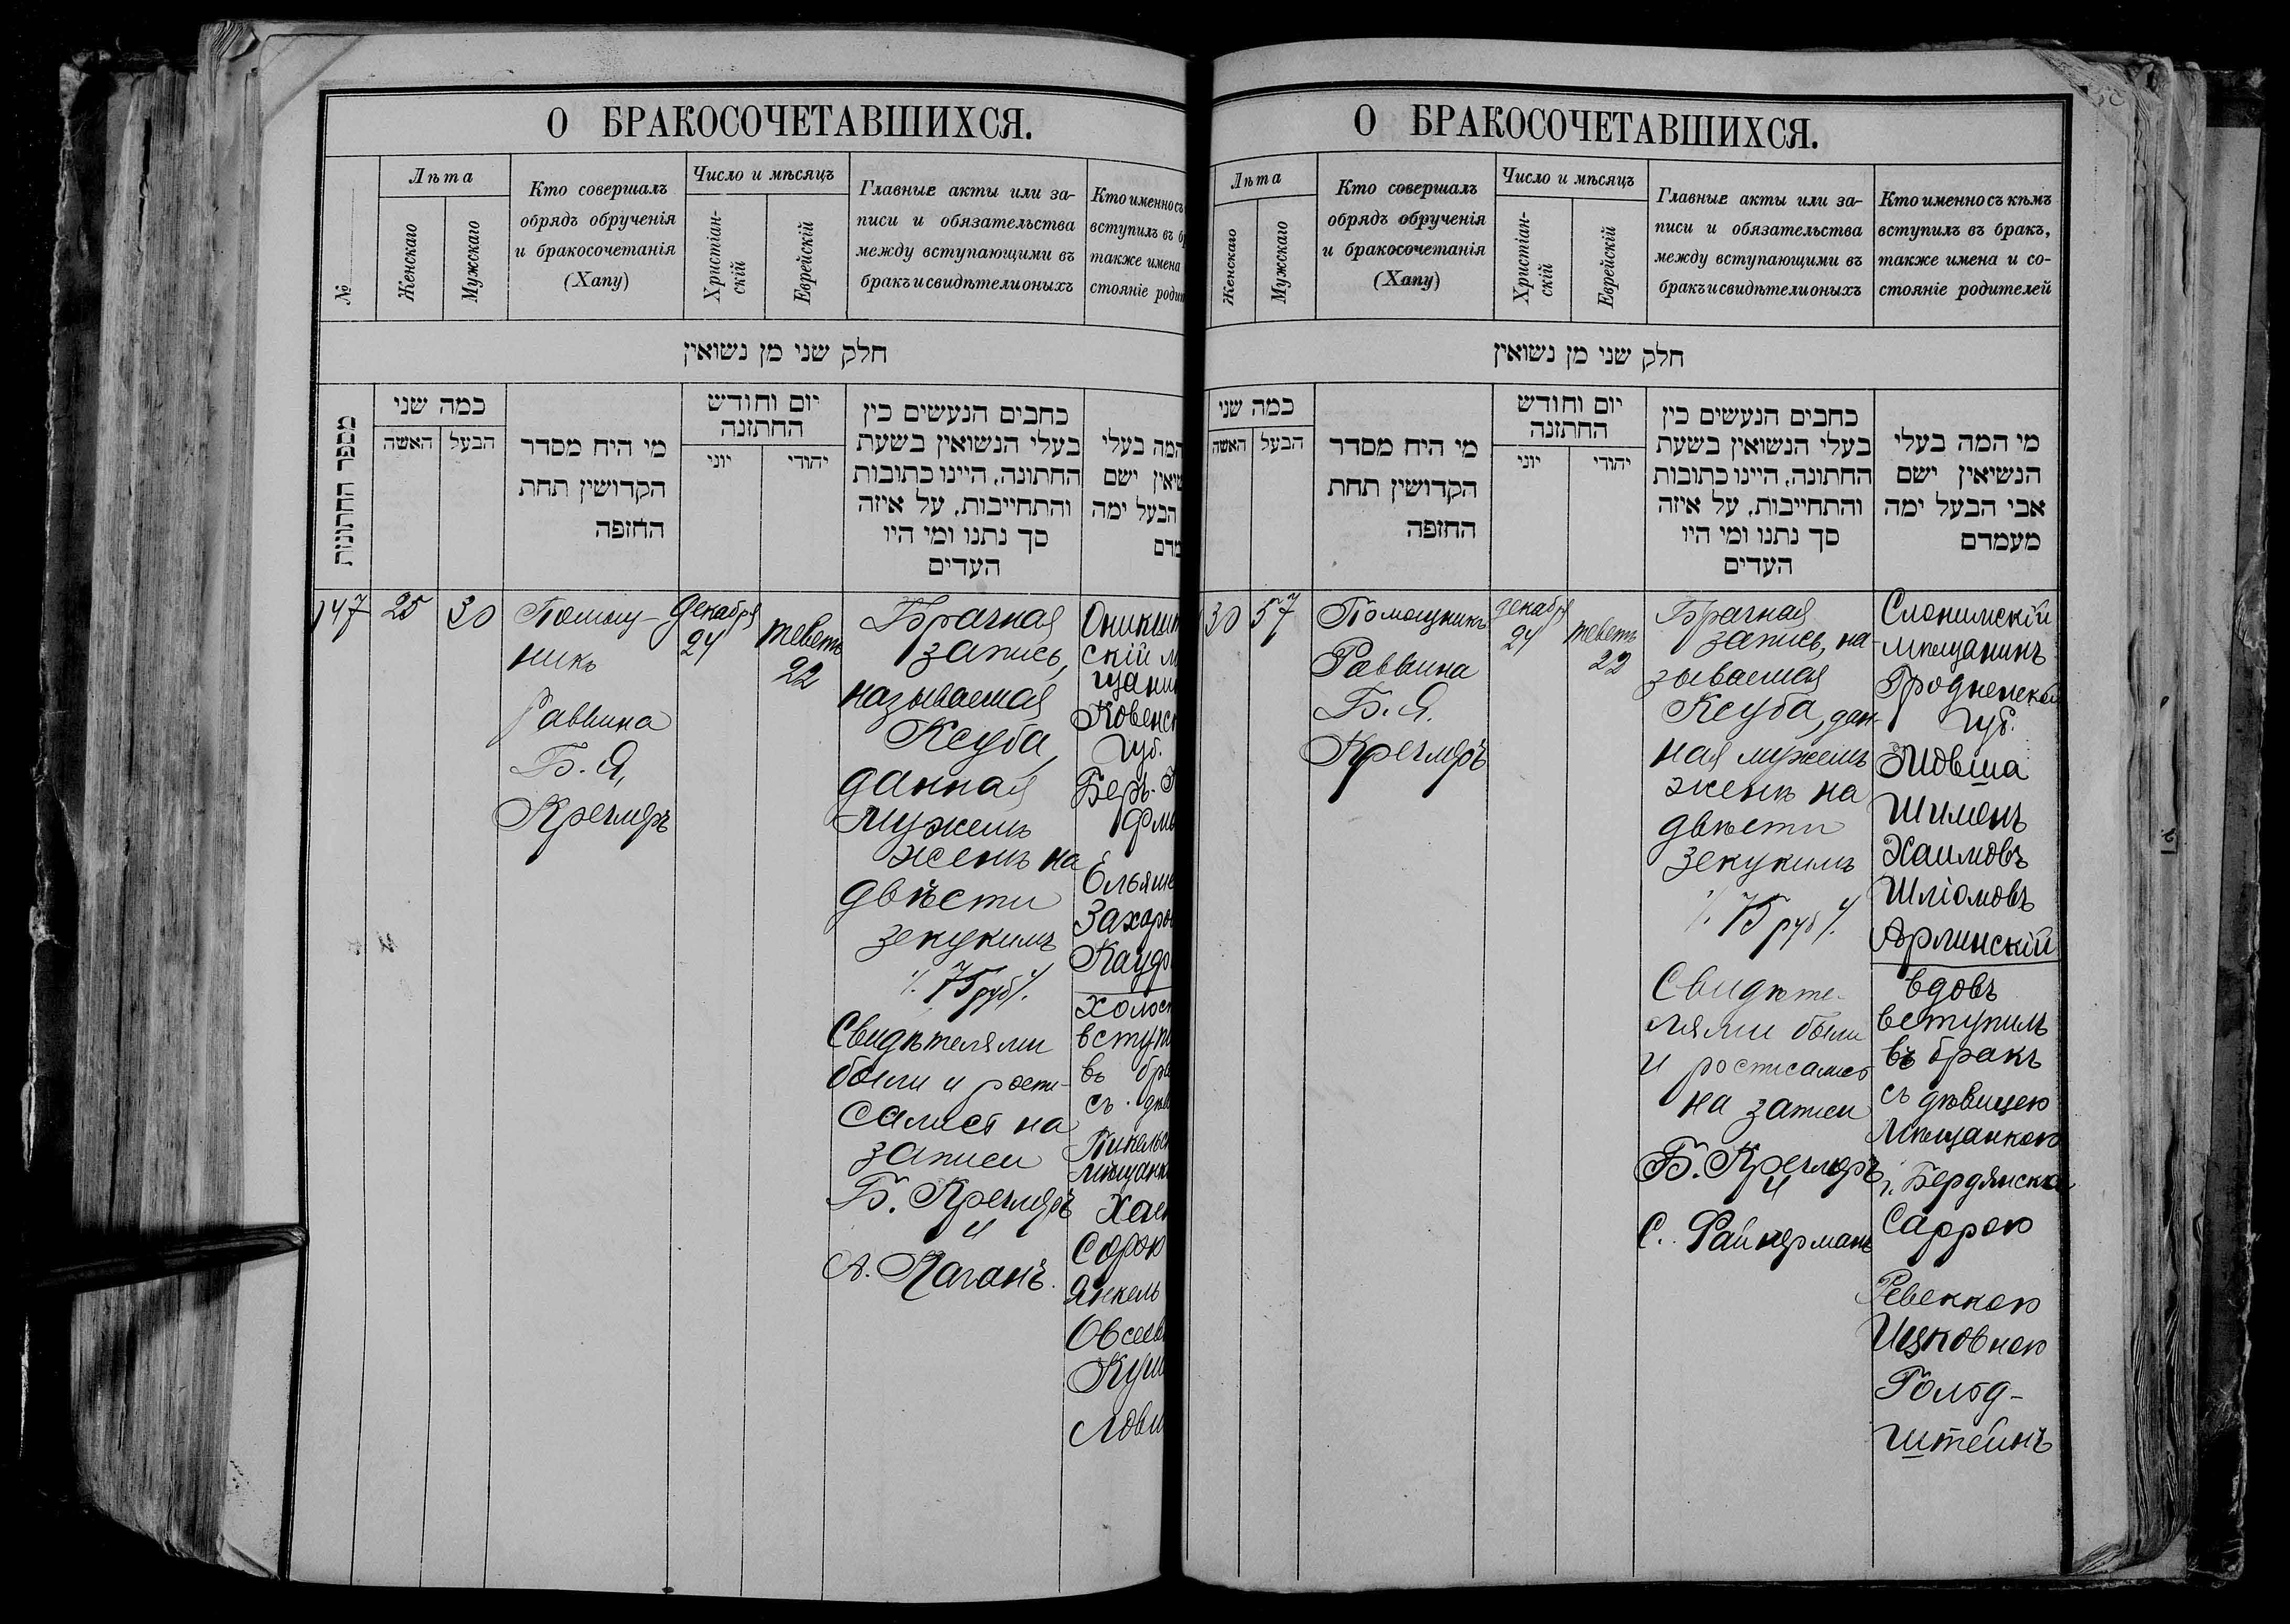 О БРАКОСОЧЕТАВШИХСЯ.
№
Лѣта
Женскаго
Мужскаго
Кто совершалъ
обрядъ обрученія
и бракосочетанія
(Хапу)
Число и мѣсяцъ
Христіан-
скій
Еврейскій
Главные акты или за-
писи и обязательства
между вступающими въ
бракъ и свидѣтели оныхъ
Кто именно съ
вступилъ въ б
также имена
стояніе роди
חלק שני מן נשואין
מספר החתונות
כמה שני
האשה
הבעל
מי היח מסדר
הקדושין תחת
החופה
יום וחודש
החתונה
יוני
יהודי
כתבים הנעשים בין
בעלי הנשואין בשעת
החתונה, היינו כתובות
והתחייבות, על איזה
סך נתנו ומי היו
העדים
המה בעלי
שיאין ישם
הבעל ימה
מדם
147
25
30
Помощ-
никъ
Раввина
Б. Я,
Кречмеръ
Декабря
24
теветъ
22
Брачная
запись,
называемая
Ксуба,
данная
мужемъ
женѣ на
двѣсти
зекукимъ
/. 75 руб /.
Свидѣтелями
были и роспи-
сались на
записи
Б. Кречмеръ
и
А. Каганъ.
Оникшт
скій м
щанин
Ковенск
губ.
Беръ-
Ельяше
Захаро
Хол
вступи
въ бра
съ дѣв
мѣщанк
Хаен
Сорок
Янкель
Овсеев
О БРАКОСОЧЕТАВШИХСЯ.
Лѣта
Женскаго
Мужскаго
Кто совершалъ
обрядъ обрученія
и бракосочетанія
(Хапу)
Число и мѣсяцъ
Христіан-
скій
Еврейскій
Главные акты или за-
писи и обязательства
между вступающими въ
бракъ и свидѣтели оныхъ
Кто именно съ кѣмъ
вступилъ въ бракъ,
также имена и со-
стояніе родителей
חלק שני מן נשואין
כמה שני
האשה
הבעל
מי היח מסדר
הקדושין תחת
החופה
יום וחודש
החתונה
יוני
יהודי
כתבים הנעשים בין
בעלי הנשואין בשעת
החתונה, היינו כתובות
והתחייבות, על איזה
סך נתנו ומי היו
העדים
מי המה בעלי
הנשיאין ישם
אבי הבעל ימה
מעמדם
30
57
Помощникъ
Раввина
Б. Я.
Кречмеръ
декабря
24
теветъ
22
Брачная
запись, на-
зываемая
Ксуба, дан-
ная мужемъ
женѣ на
двѣсти
зекукимъ
/. 75 руб /.
Свидѣте-
лями были
и росписались
на записи
Б. Кречмеръ
и
С. Файнерманъ
Слонимскій
мѣщанинъ
Гродненской
губ.
Мовша
Шименъ
Хаимовъ
Шліомовъ
Арлинскій
вдовъ
вступилъ
въ бракъ
съ дѣвицею
мѣщанкою
г. Бердянска
Саррою
Ревеккою
Ицковною
Гольд-
штейнъ